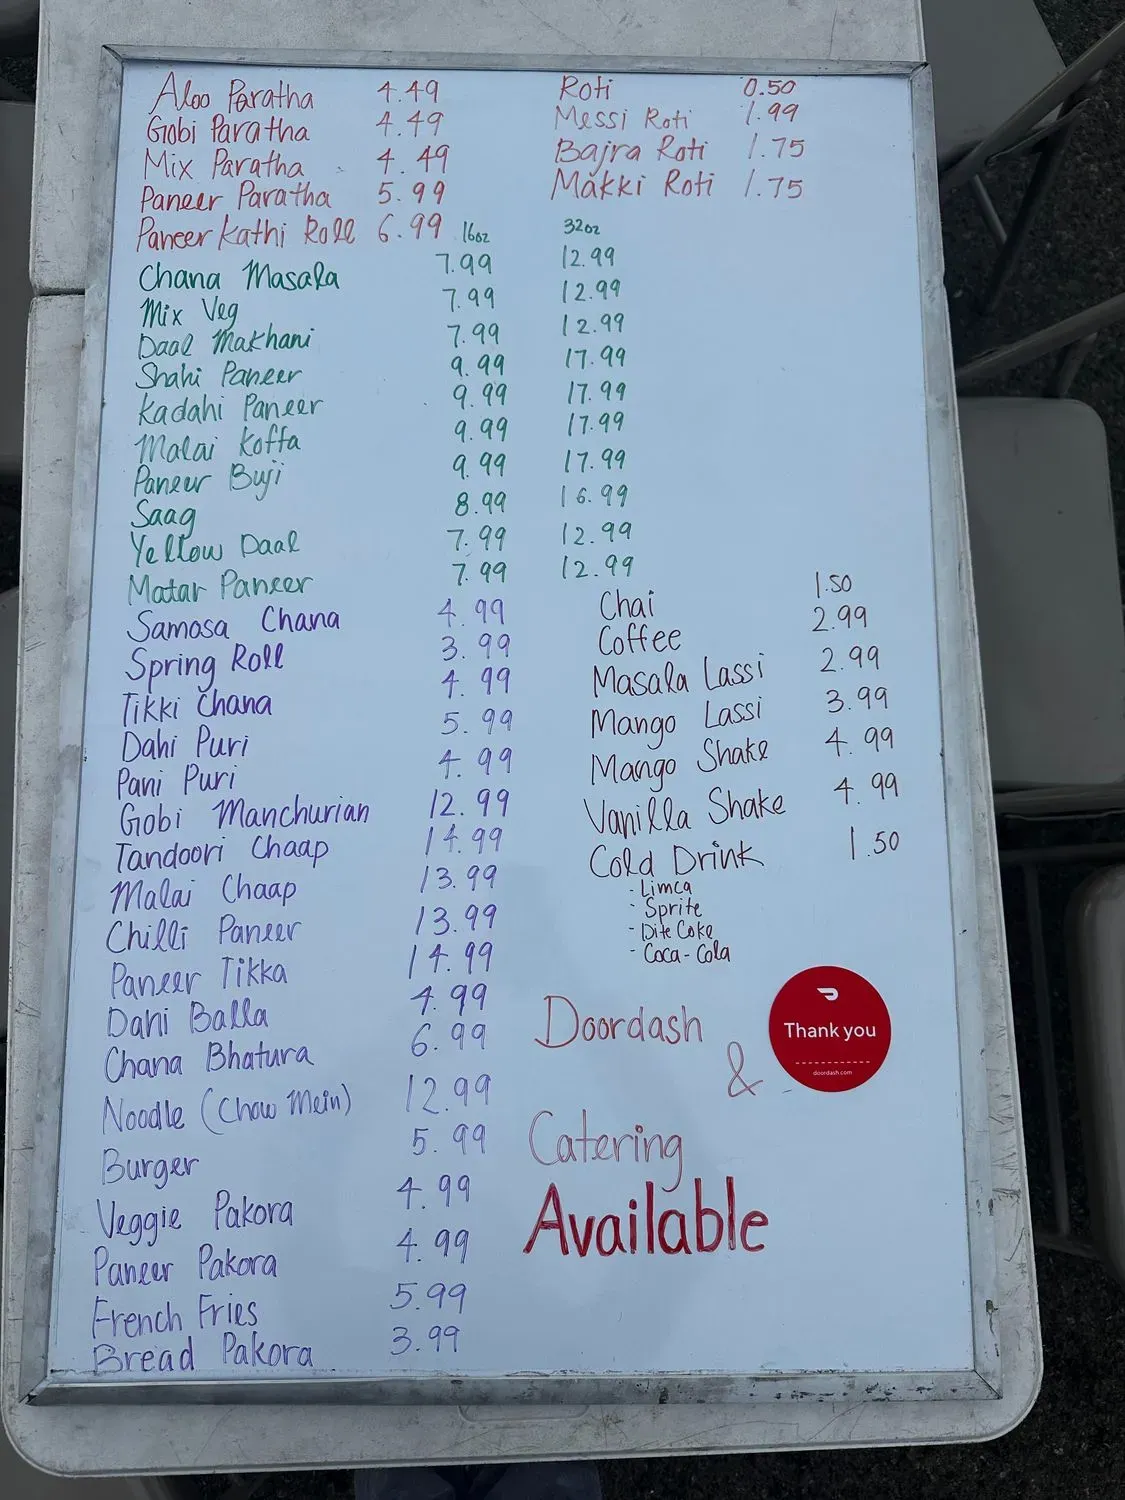 Aloo Paratha 4.49
Gobi Paratha 4.49
Mix Paratha 4.49
Paneer Paratha 5.99
Paneer Kathi Roll 6.99
Roti 0.50
Messi Roti 1.99
Bajra Roti 1.75
Makki Roti 1.75
16oz 32oz
Chana Masala 7.99 12.99
Mix Veg 7.99 12.99
Daal Makhani 7.99 12.99
Shahi Paneer 9.99 17.99
Kadahi Paneer 9.99 17.99
Malai Koffa 9.99 17.99
Paneer Buji 9.99 17.99
Saag 8.99 16.99
Yellow Daal 7.99 12.99
Matar Paneer 7.99 12.99
Samosa Chana 4.99
Spring Roll 3.99
Tikki Chana 4.99
Dahi Puri 5.99
Pani Puri 4.99
Gobi Manchurian 12.99
Tandoori Chaap 14.99
Malai Chaap 13.99
Chilli Paneer 13.99
Paneer Tikka 14.99
Dahi Balla 4.99
Chana Bhatura 6.99
Noodle (Chow Mein) 12.99
Burger 5.99
Veggie Pakora 4.99
Paneer Pakora 4.99
French Fries 5.99
Bread Pakora 3.99
Chai 1.50
Coffee 2.99
Masala Lassi 2.99
Mango Lassi 3.99
Mango Shake 4.99
Vanilla Shake 4.99
Cold Drink 1.50
- Limca
- Sprite
- Dite Coke
- Coca-Cola
Doordash
&
Catering
Available
Thank you
doordash.com